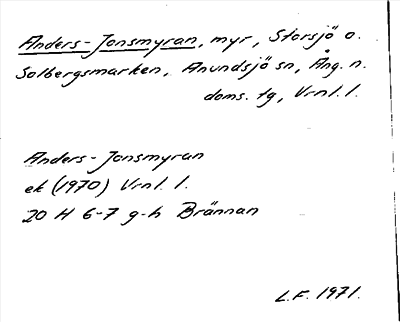 Anders-Jonsmyran, myr, Storsjö o.
Solbergsmarken, Anundsjö sn, Ång. n.
doms. tg, Vrnl. l.
Anders-Jonsmyran
ek (1970) Vrnl. l.
20 H 6-7 g-h Brännan
L.F. 1971.